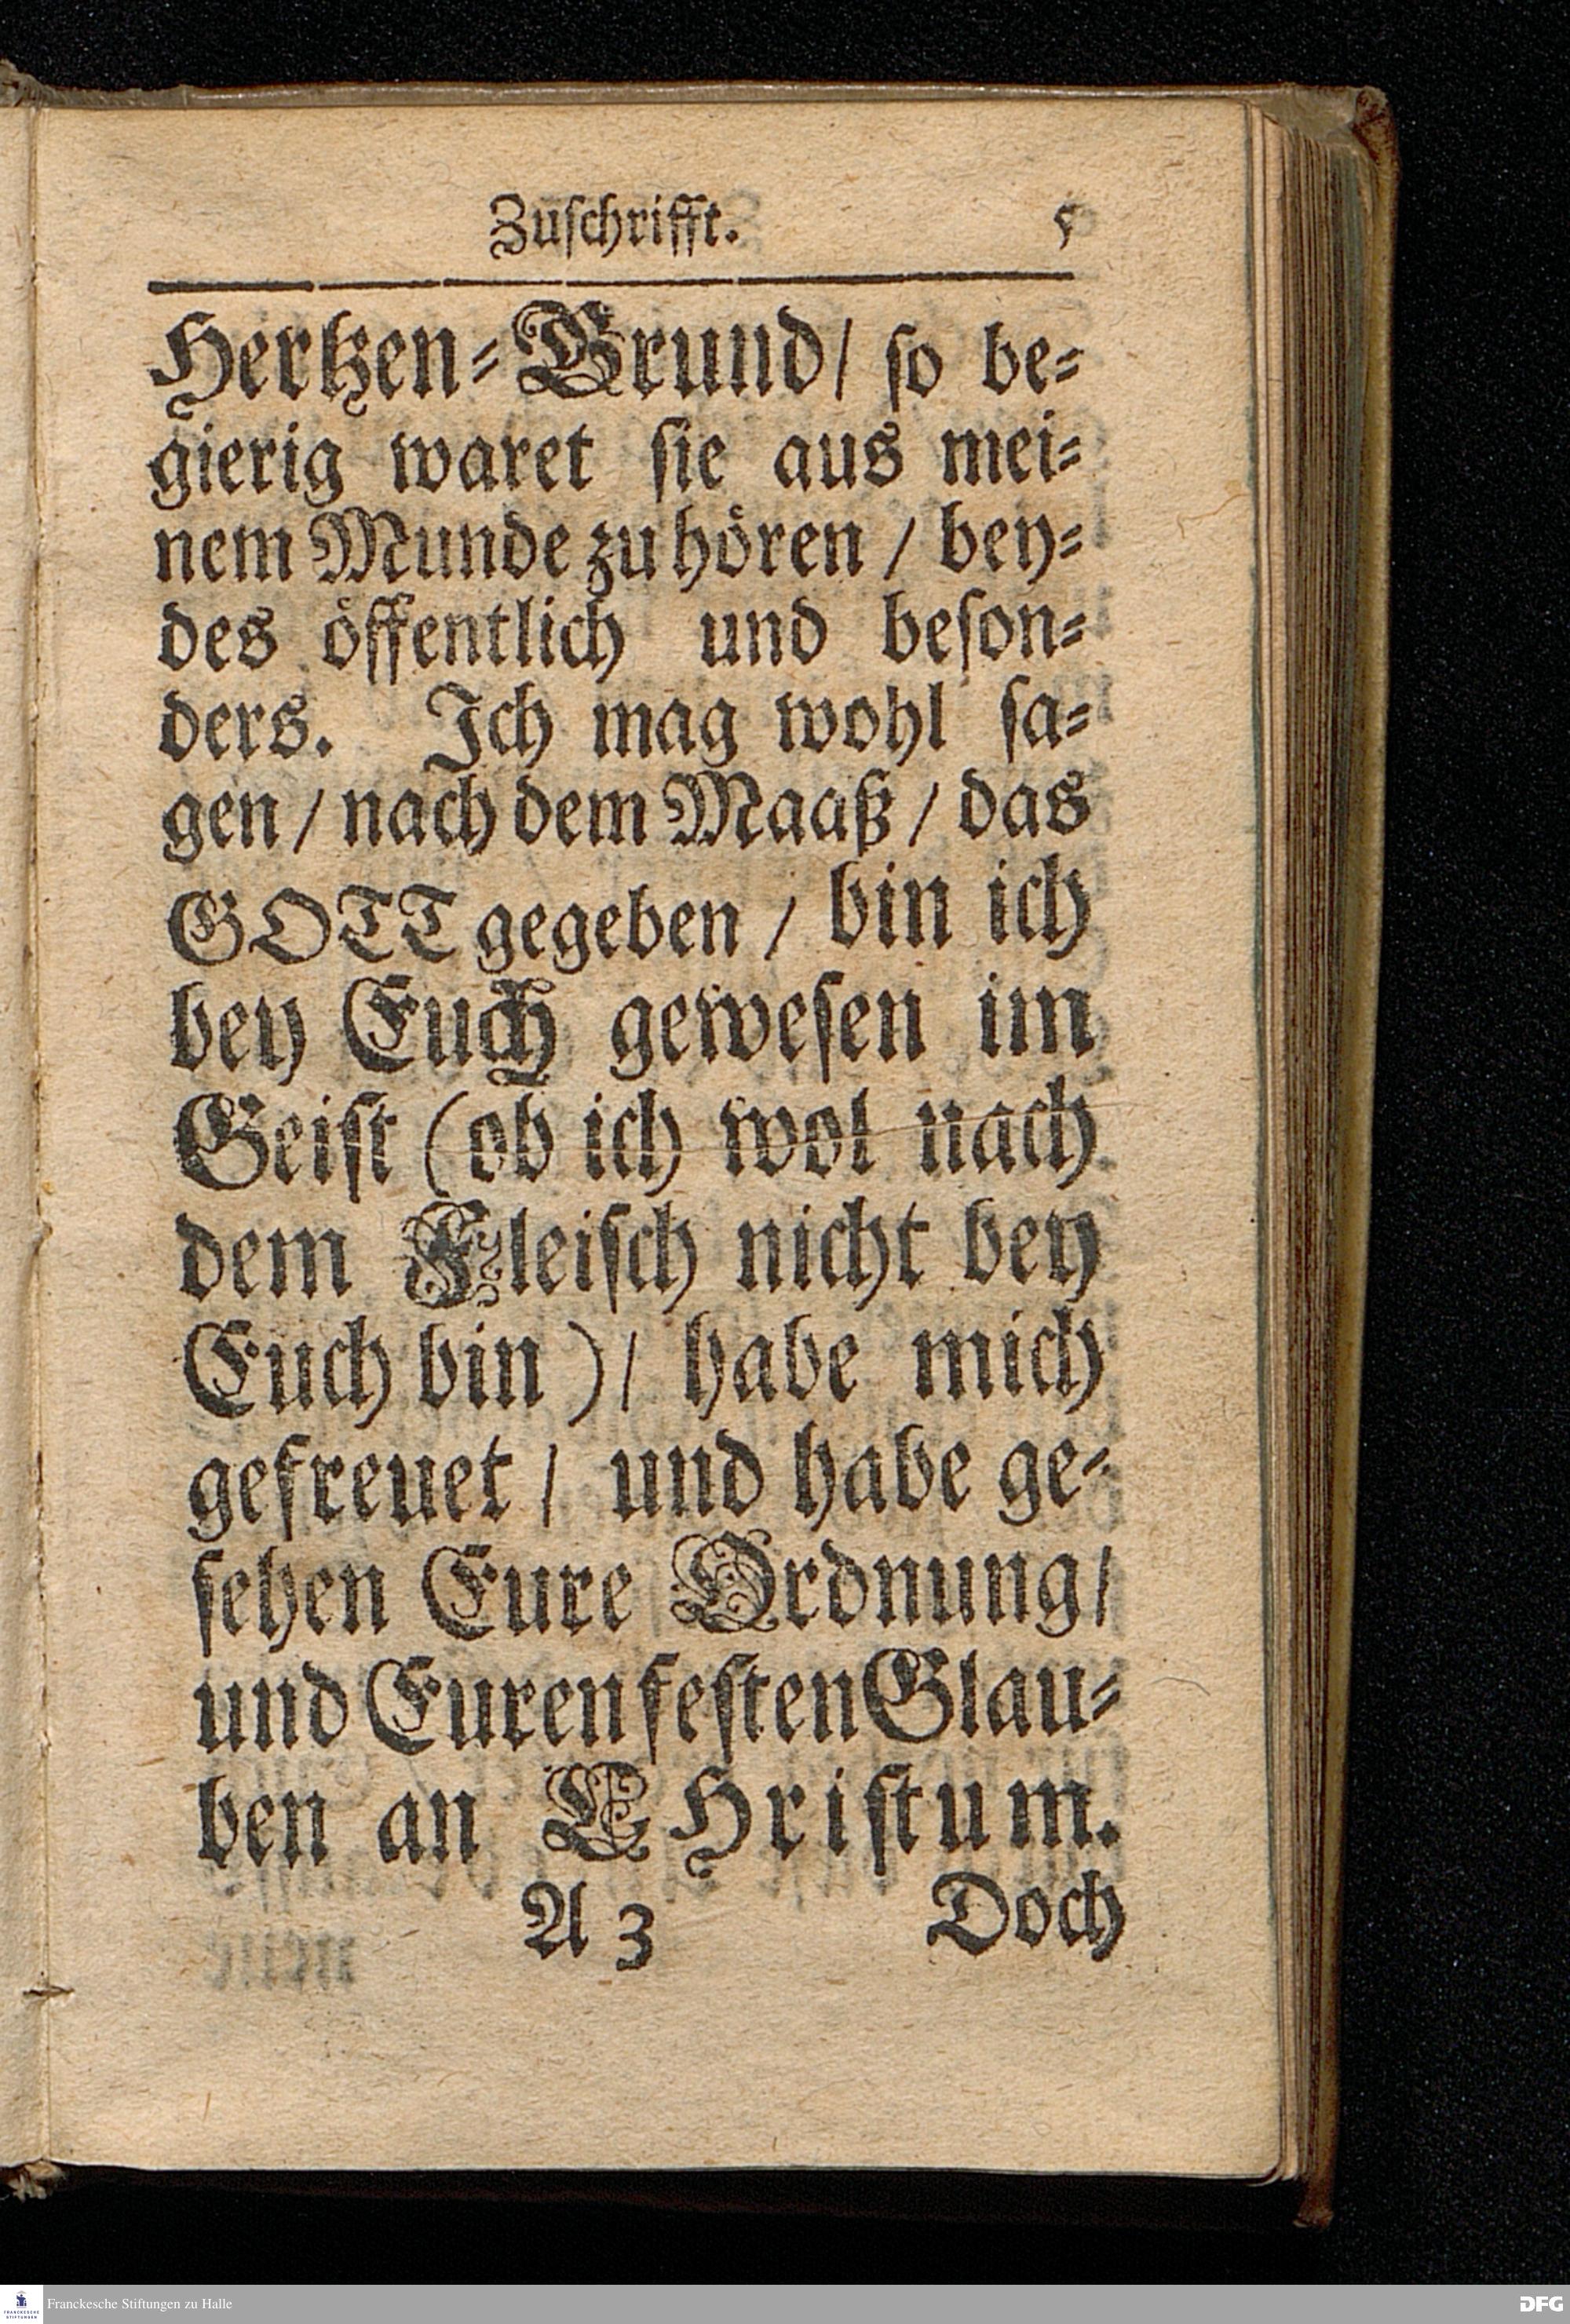 Zuschrifft. 5
Hertzen-Grund/ so be-
gierig waret sie aus mei-
nem Munde zu hören / bey-
des öffentlich und beson-
ders. Ich mag wohl sa-
gen / nach dem Maaß / das
GOTT gegeben / bin ich
bey Euch gewesen im
Geist (ob ich wol nach
dem Fleisch nicht bey
Euch bin)/ habe mich
gefreuet / und habe ge-
sehen Eure Ordnung/
und Euren festen Glau-
ben an CHristum.
A 3 Doch
Franckesche Stiftungen zu Halle
DFG